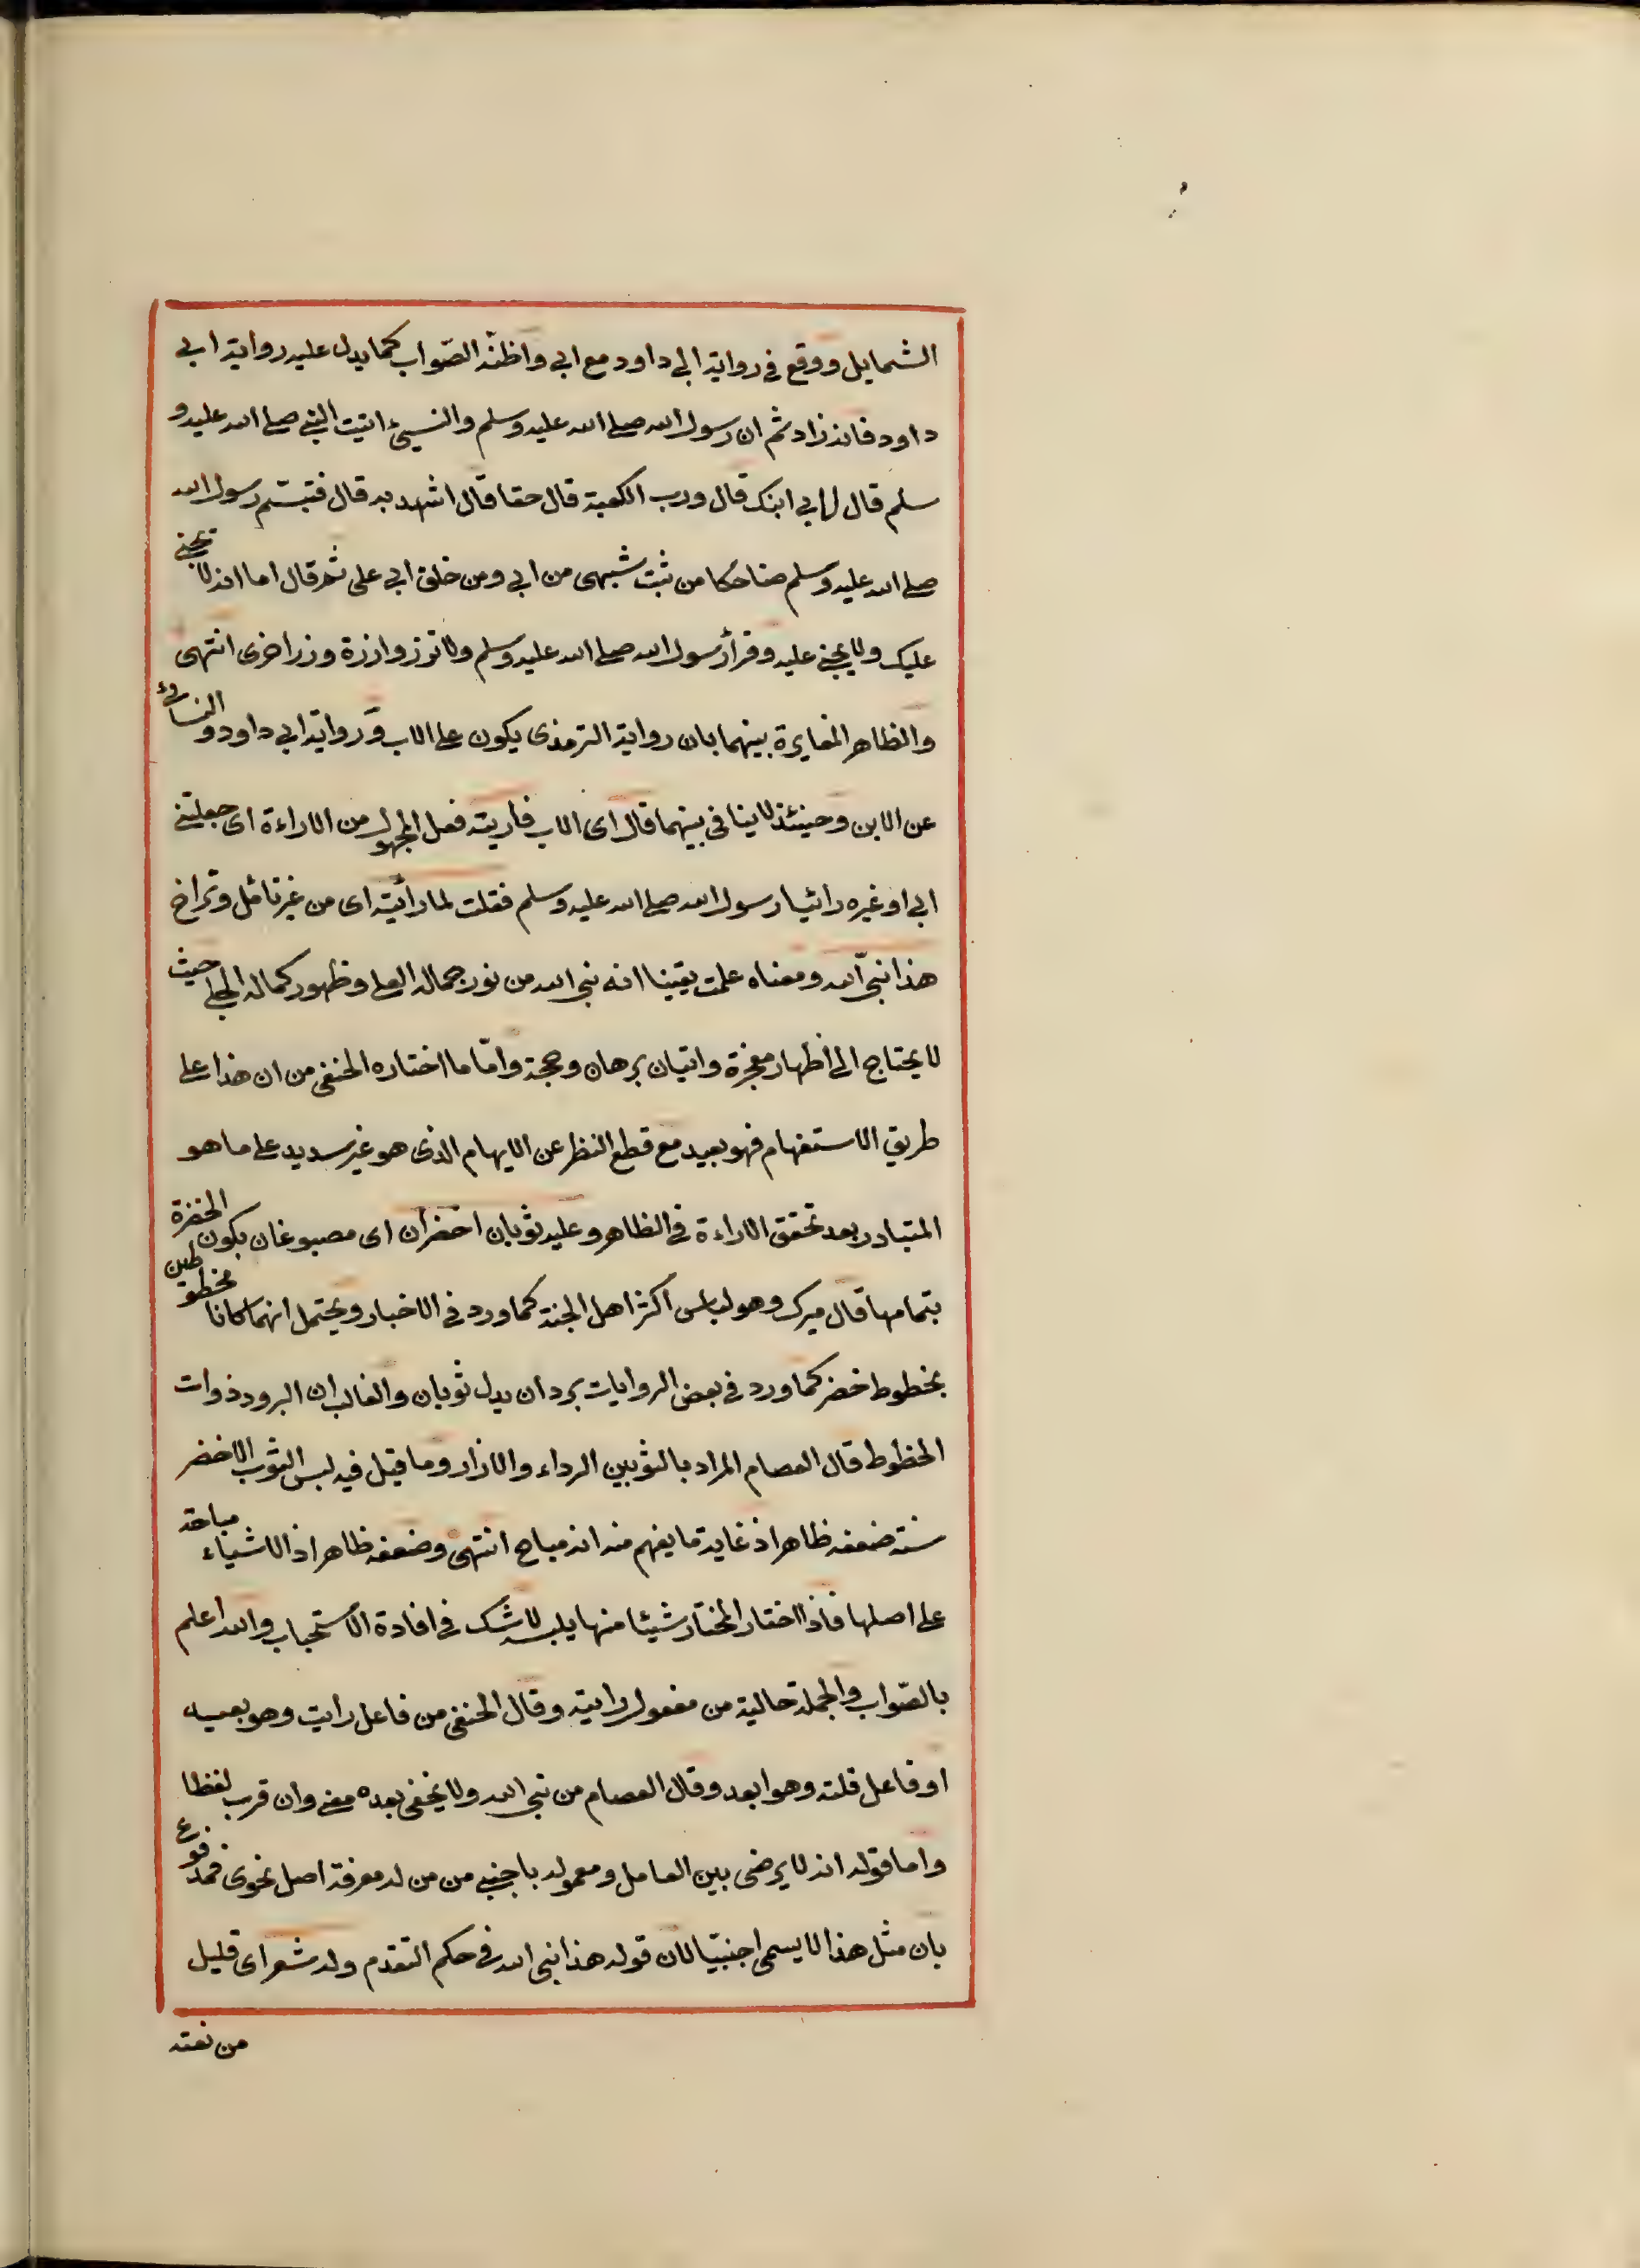 الشمايل ووقع في رواية ابي داود مع ابي واظنه الصّواب كما يدل عليه رواية ابي
داود فانه زاد ثم ان رسول الله صلى الله عليه وسلم والنسيئ اتيت النبي صلى الله عليه و
سلم قال لابي ابنك قال ورب الكعبة قال حقا قال اشهد به قال فتبسّم رسول الله
صلى الله عليه وسلم ضاحكا من ثبت شبهى من ابي ومن خلق ابي على ثم قال اما انه لا يجني
عليك ولا يجني عليه وقرأ رسول الله صلى الله عليه وسلم ولا تزر وازرة وزر اخرى انتهى
والظاهر المغايرة بينهما بان رواية الترمذى يكون على الاب و رواية ابي داود والنسائي
عن الابن وحينئذ لا ينافى بينهما قال اى الاب فاريته فعل المجهول من الاراءة اى جعلني
ابي او غيره رائيا رسول الله صلى الله عليه وسلم فقلت لما رأيته اى من غير تأمل وتراخ
هذا نبي الله ومعناه علمت يقينا انه نبي الله من نور جماله العلي وظهور كماله الجلي حيث
لا يحتاج الى اظهار معجزة واتيان برهان وحجة وامّا ما اختاره الحنفى من ان هذا على
طريق الاستفهام فهو بعيد مع قطع النظر عن الايهام الذى هو غير سديد على ما هو
المتبادر بعد تحقق الاراءة في الظاهر وعليه ثوبان اخضران اى مصبوغان بكون الخضرة
بتمامها قال ميرك وهو لباس اكثر اهل الجنة كما ورد في الاخبار ويحتمل انهما كانا مخطوطين
بخطوط خضر كما ورد في بعض الروايات بردان بدل ثوبان والغالب ان البرود ذوات
الخطوط قال العصام المراد بالثوبين الرداء والازار وما قيل فيه لبس الثوب الاخضر
سنة ضعفه ظاهر اذ غاية ما يفهم منه انه مباح انتهى وضعفه ظاهر اذ الاشياء مباحة
على اصلها فاذا اختار المختار شيئا منها يلبسه لا شك في افادة الاستحباب والله اعلم
بالصّواب والجملة حالية من مفعول رايته وقال الحنفى من فاعل رايت وهو بعيد
او فاعل قلته وهو ابعد وقال العصام من نبي الله ولا يخفى بعده معنى وان قرب لفظا
واما قوله انه لا يرضى بين العامل ومعموله باجنبي من من له معرفة اصل نحوى فمدفوع
بان مثل هذا لا يسمى اجنبيّا لان قوله هذا نبي الله في حكم التقدم وله شعر اى قليل
من نعته